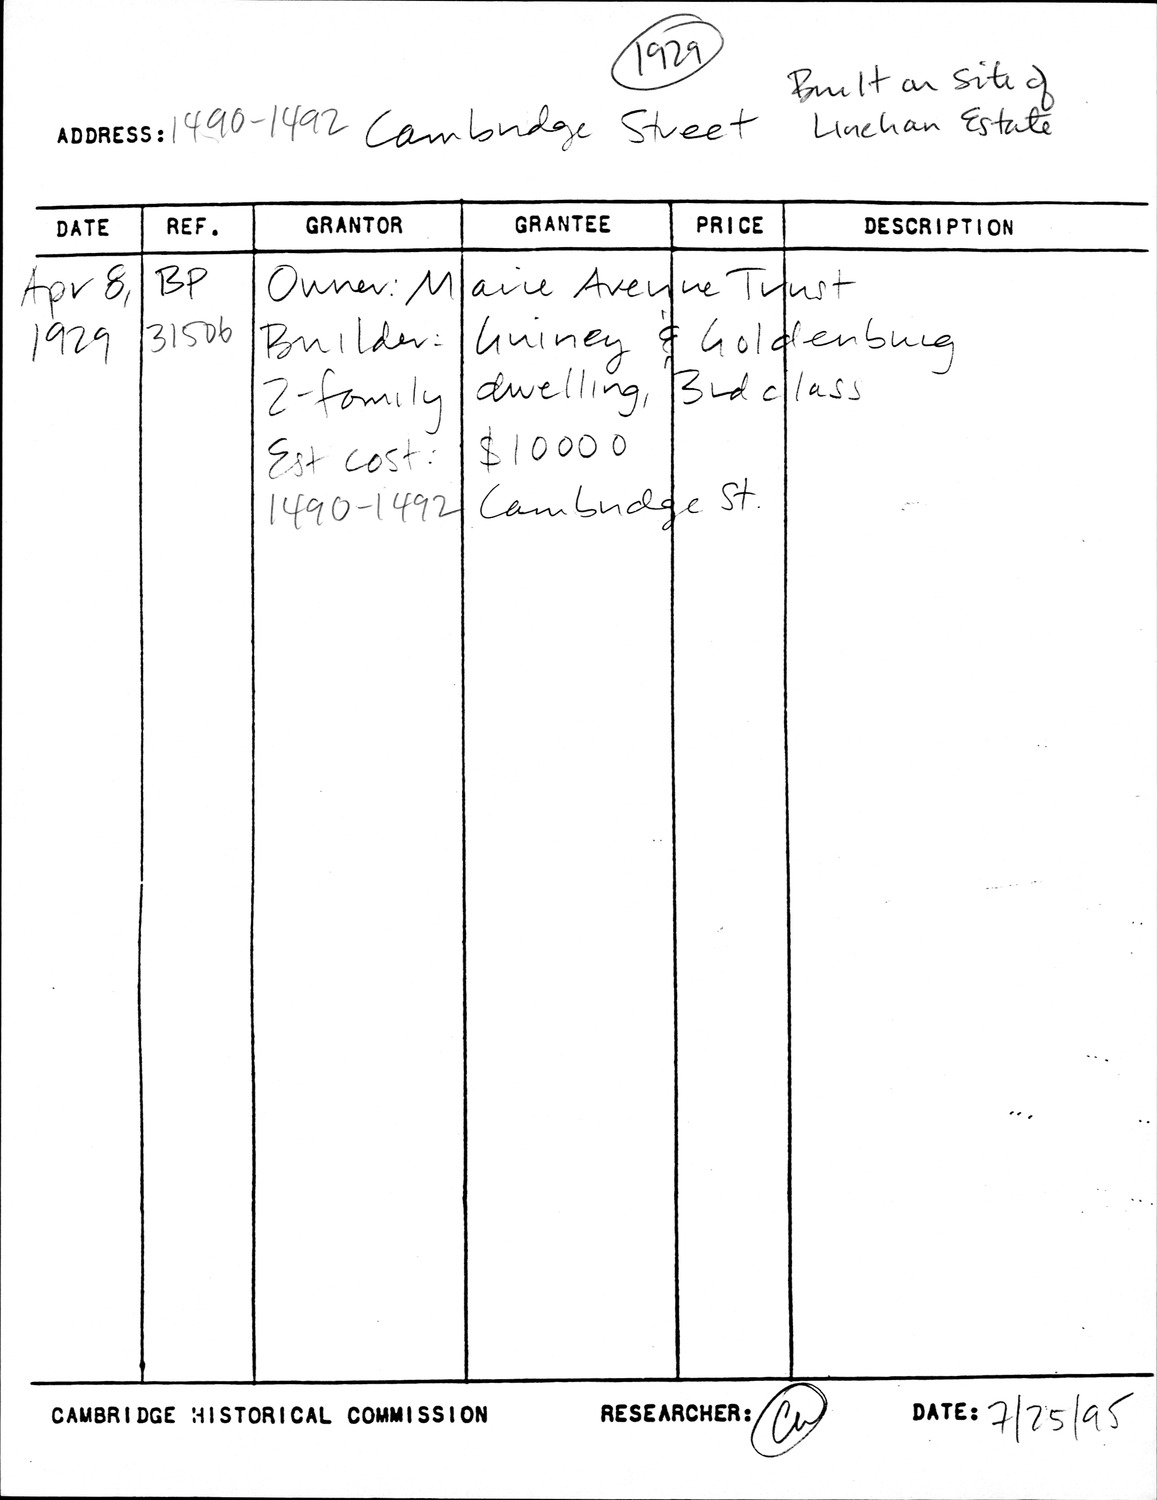 1929
Built on site of
Linehan Estate
ADDRESS: 1490-1492 Cambridge Street
DATE REF. GRANTOR GRANTEE PRICE DESCRIPTION
Apr 8, BP Owner: Marie Avenue Trust
1929 31506 Builder: Guiney & Goldenburg
2-family dwelling, 3rd class
Est cost: $10000
1490-1492 Cambridge St.
CAMBRIDGE HISTORICAL COMMISSION RESEARCHER: DATE: 7/25/95